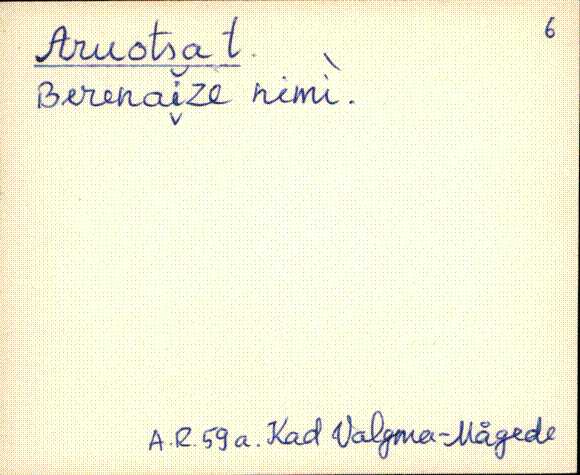 6
Aruotsa t.
Berenaize nimì.
A.R. 59 a. Kad Valgma-Mågede